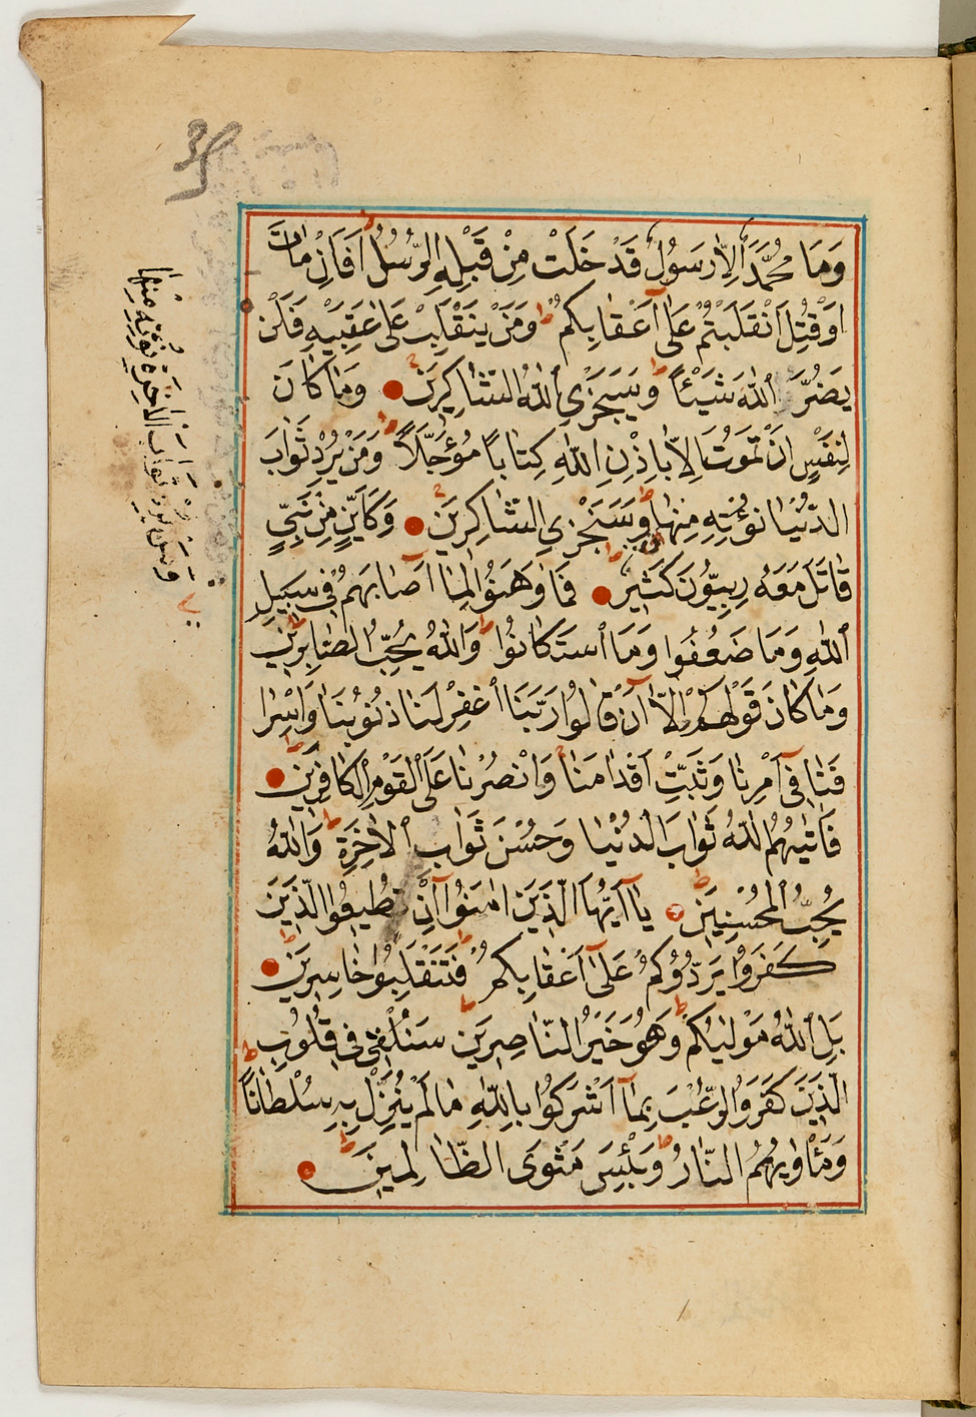 وَمَا مُحَمَّدٌ اِلَّا رَسُولٌ قَدْ خَلَتْ مِنْ قَبْلِهِ الرُّسُلُ اَفَاَنْ مَاتَ
اَوْ قُتِلَ انْقَلَبْتُمْ عَلٰى اَعْقَابِكُمْ وَمَنْ يَنْقَلِبْ عَلٰى عَقِبَيْهِ فَلَنْ
يَضُرَّ اللّٰهَ شَيْئًا وَسَيَجْزِي اللّٰهُ الشَّاكِرِينَ وَمَا كَانَ
لِنَفْسٍ اَنْ تَمُوتَ اِلَّا بِاِذْنِ اللّٰهِ كِتَابًا مُؤَجَّلًا وَمَنْ يُرِدْ ثَوَابَ
الدُّنْيَا نُؤْتِهِ مِنْهَا وَسَنَجْزِي الشَّاكِرِينَ وَكَاَيِّنْ مِنْ نَبِيٍّ
قَاتَلَ مَعَهُ رِبِّيُّونَ كَثِيرٌ فَمَا وَهَنُوا لِمَا اَصَابَهُمْ فِي سَبِيلِ
اللّٰهِ وَمَا ضَعُفُوا وَمَا اسْتَكَانُوا وَاللّٰهُ يُحِبُّ الصَّابِرِينَ
وَمَا كَانَ قَوْلَهُمْ اِلَّا اَنْ قَالُوا رَبَّنَا اغْفِرْ لَنَا ذُنُوبَنَا وَاِسْرَا
فَنَا فِي اَمْرِنَا وَثَبِّتْ اَقْدَامَنَا وَانْصُرْنَا عَلَى الْقَوْمِ الْكَافِرِينَ
فَاٰتٰيهُمُ اللّٰهُ ثَوَابَ الدُّنْيَا وَحُسْنَ ثَوَابِ الْاٰخِرَةِ وَاللّٰهُ
يُحِبُّ الْمُحْسِنِينَ يَا اَيُّهَا الَّذِينَ اٰمَنُوا اِنْ تُطِيعُوا الَّذِينَ
كَفَرُوا يَرُدُّوكُمْ عَلٰى اَعْقَابِكُمْ فَتَنْقَلِبُوا خَاسِرِينَ
بَلِ اللّٰهُ مَوْلٰيكُمْ وَهُوَ خَيْرُ النَّاصِرِينَ سَنُلْقِي فِي قُلُوبِ
الَّذِينَ كَفَرُوا الرُّعْبَ بِمَا اَشْرَكُوا بِاللّٰهِ مَا لَمْ يُنَزِّلْ بِهِ سُلْطَانًا
وَمَاْوٰيهُمُ النَّارُ وَبِئْسَ مَثْوَى الظَّالِمِينَ
وَمَنْ يُرِدْ ثَوَابَ الْاٰخِرَةِ نُؤْتِهِ مِنْهَا